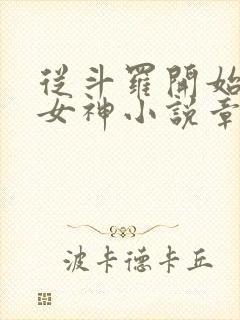 從斗羅開始
女神小說章
波卡德卡丘